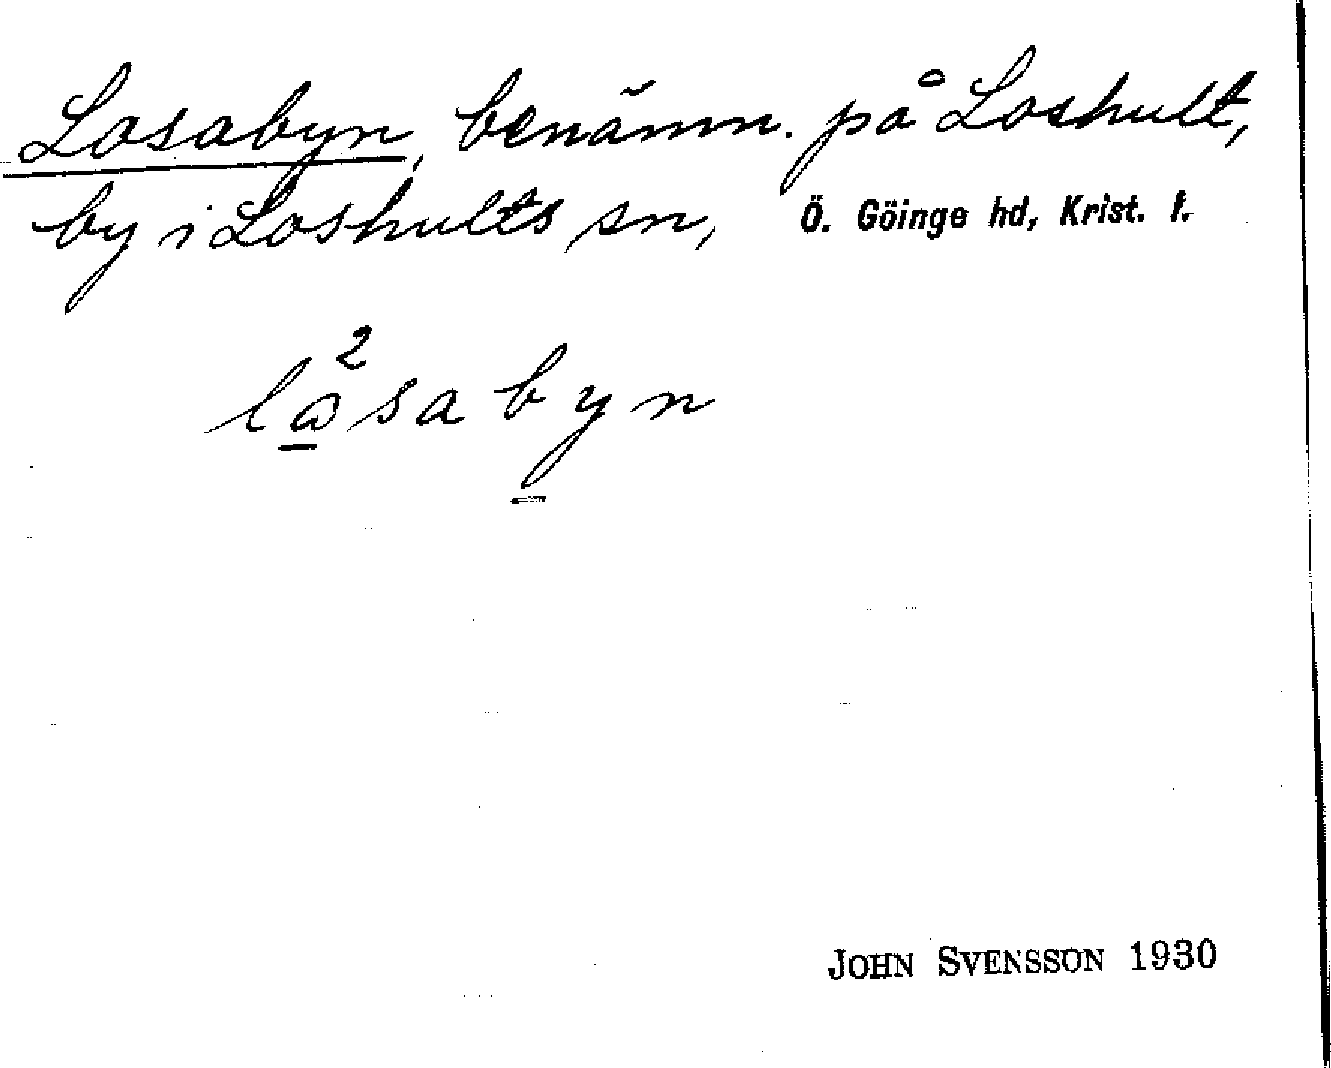 Losabyn, benämn. på Loshult,
by i Loshults sn, Ö. Göinge hd, Krist. l.
lω̲²sabyn̲
JOHN SVENSSON 1930